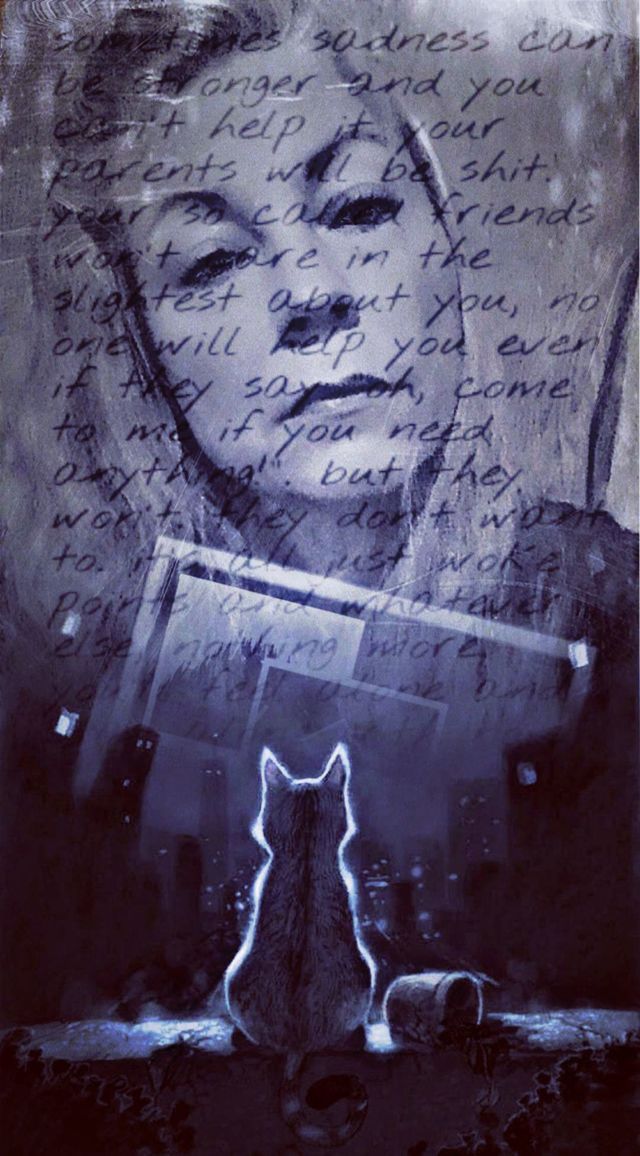 sometimes sadness can
be stronger and you
can't help it. your
parents will be shit.
your so called friends
won't care in the
slightest about you, no
one will help you even
if they say "oh, come
to me if you need
anything!". but they
won't. they don't want
to. it's all just woke
points and whatever
else, nothing more.
you'll feel alone and